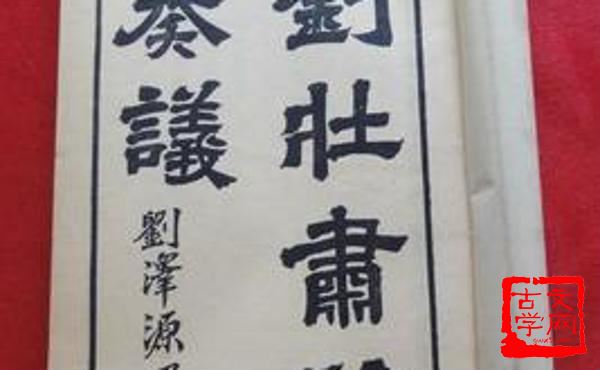 劉壯肅
奏議
劉澤源
古学